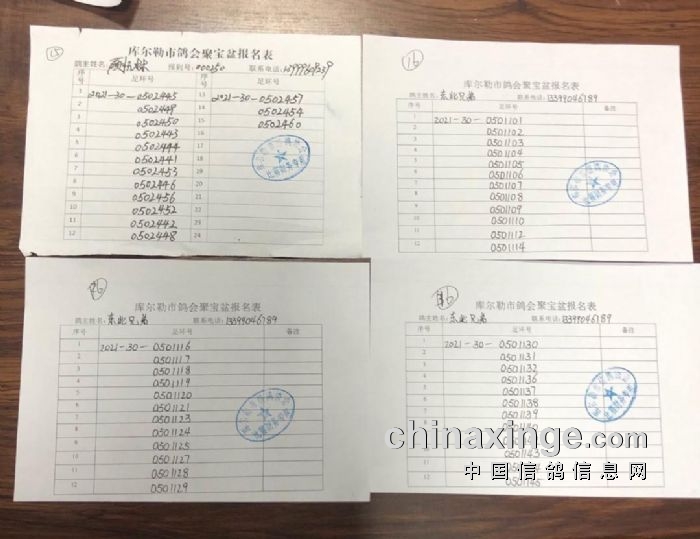 15
库尔勒市鸽会聚宝盆报名表
鸽主姓名: 报到号: 000250 联系电话:
序号 足环号 序号 足环号
1 2021-30-0502445 13 2021-30-0502457
2 0502449 14 0502454
3 0502450 15 0502460
4 0502443 16
5 0502444 17
6 0502441 18
7 0502453 19
8 0502446 20
9 0502456 21
10 0502452 22
11 0502442 23
12 0502448 24
16
库尔勒市鸽会聚宝盆报名表
鸽主姓名: 东北兄弟 联系电话: 13399046789
序号 足环号 备注
1 2021-30-0501101
2 0501102
3 0501103
4 0501104
5 0501105
6 0501106
7 0501107
8 0501108
9 0501109
10 0501110
11 0501112
12 0501114
库尔勒市鸽会聚宝盆报名表
鸽主姓名: 东北兄弟 联系电话: 13399046789
序号 足环号 备注
1 2021-30-0501116
2 0501117
3 0501118
4 0501119
5 0501120
6 0501121
7 0501123
8 0501124
9 0501125
10 0501127
11 0501128
12 0501129
库尔勒市鸽会聚宝盆报名表
鸽主姓名: 东北兄弟 联系电话: 13399046789
序号 足环号 备注
1 2021-30-0501130
2 0501131
3 0501132
4 0501136
5 0501137
6 0501138
7 0501139
10 0501143
12
chinaxinge.com
中国信鸽信息网